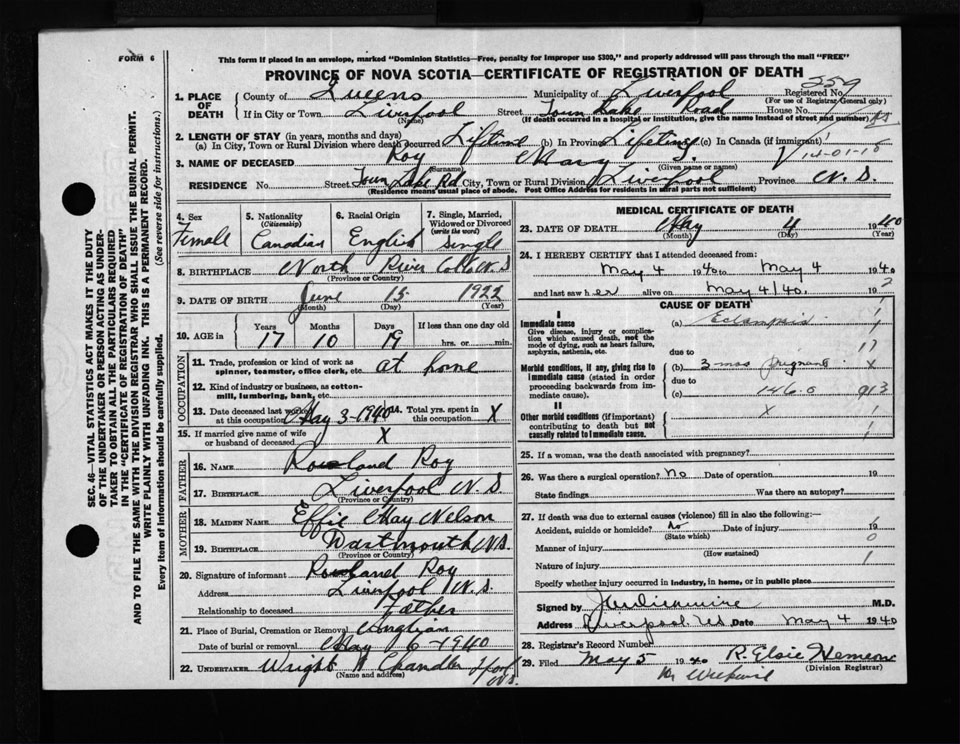 FORM 6
This form if placed in an envelope, marked "Dominion Statistics—Free, penalty for improper use $300," and properly addressed will pass through the mail "FREE"
PROVINCE OF NOVA SCOTIA—CERTIFICATE OF REGISTRATION OF DEATH
1. PLACE OF DEATH
County of Queens Municipality of Liverpool Registered No. 559
(For use of Registrar General only)
If in City or Town Liverpool Street Town Lake Road House No.
(Name) (If death occurred in a hospital or institution, give the name instead of street and number)
2. LENGTH OF STAY (in years, months and days)
(a) In City, Town or Rural Division where death occurred Lifetime (b) In Province Lifetime (c) In Canada (if immigrant)
14-01-18
3. NAME OF DECEASED Roy Mary
(Surname) (Given name or names)
RESIDENCE No. Street Town Lake Rd City, Town or Rural Division Liverpool Province N. S.
(Residence means usual place of abode. Post Office Address for residents in rural parts not sufficient)
4. Sex Female
5. Nationality (Citizenship) Canadian
6. Racial Origin English
7. Single, Married, Widowed or Divorced (write the word) Single
8. BIRTHPLACE North River Col. Co. N. S
(Province or Country)
9. DATE OF BIRTH June 15 1922
(Month) (Day) (Year)
10. AGE in Years 17 Months 10 Days 19 If less than one day old hrs. or min.
OCCUPATION
11. Trade, profession or kind of work as spinner, teamster, office clerk, etc. at home
12. Kind of industry or business, as cotton-mill, lumbering, bank, etc.
13. Date deceased last worked at this occupation May 3-1940 14. Total yrs. spent in this occupation X
15. If married give name of wife or husband of deceased X
FATHER
16. NAME Rowland Roy
17. BIRTHPLACE Liverpool N. S.
(Province or Country)
MOTHER
18. MAIDEN NAME Effie May Nelson
19. BIRTHPLACE Dartmouth N.S.
(Province or Country)
20. Signature of informant Rowland Roy
Address Liverpool N. S.
Relationship to deceased Father
21. Place of Burial, Cremation or Removal Anglican
Date of burial or removal May 6-1940
22. UNDERTAKER Wright Chandler
(Name and address)
MEDICAL CERTIFICATE OF DEATH
23. DATE OF DEATH May 4 1940
(Month) (Day) (Year)
24. I HEREBY CERTIFY that I attended deceased from:
May 4 1940 to May 4 1940
and last saw her alive on May 4/40. 19
CAUSE OF DEATH
I
Immediate cause
Give disease, injury or complication which caused death, not the mode of dying, such as heart failure, asphyxia, asthenia, etc.
(a) Eclampsia
due to
Morbid conditions, if any, giving rise to immediate cause (stated in order proceeding backwards from immediate cause).
(b) 3 mos pregnant X
due to
(c) 146.0 913
II
Other morbid conditions (if important) contributing to death but not causally related to immediate cause. X
25. If a woman, was the death associated with pregnancy?
26. Was there a surgical operation? No Date of operation 19
State findings Was there an autopsy?
27. If death was due to external causes (violence) fill in also the following:—
Accident, suicide or homicide? No Date of injury 19
(State which)
Manner of injury
(How sustained)
Nature of injury
Specify whether injury occurred in industry, in home, or in public place
Signed by M.D.
Address Liverpool N.S. Date May 4 1940
28. Registrar's Record Number
29. Filed May 5 1940 R. Elsie Hemeon
(Division Registrar)
SEC. 46—VITAL STATISTICS ACT MAKES IT THE DUTY OF THE UNDERTAKER OR PERSON ACTING AS UNDERTAKER TO OBTAIN ALL THE PARTICULARS REQUIRED IN THE "CERTIFICATE OF REGISTRATION OF DEATH" AND TO FILE THE SAME WITH THE DIVISION REGISTRAR WHO SHALL ISSUE THE BURIAL PERMIT.
WRITE PLAINLY WITH UNFADING INK. THIS IS A PERMANENT RECORD.
Every item of information should be carefully supplied. (See reverse side for instructions.)